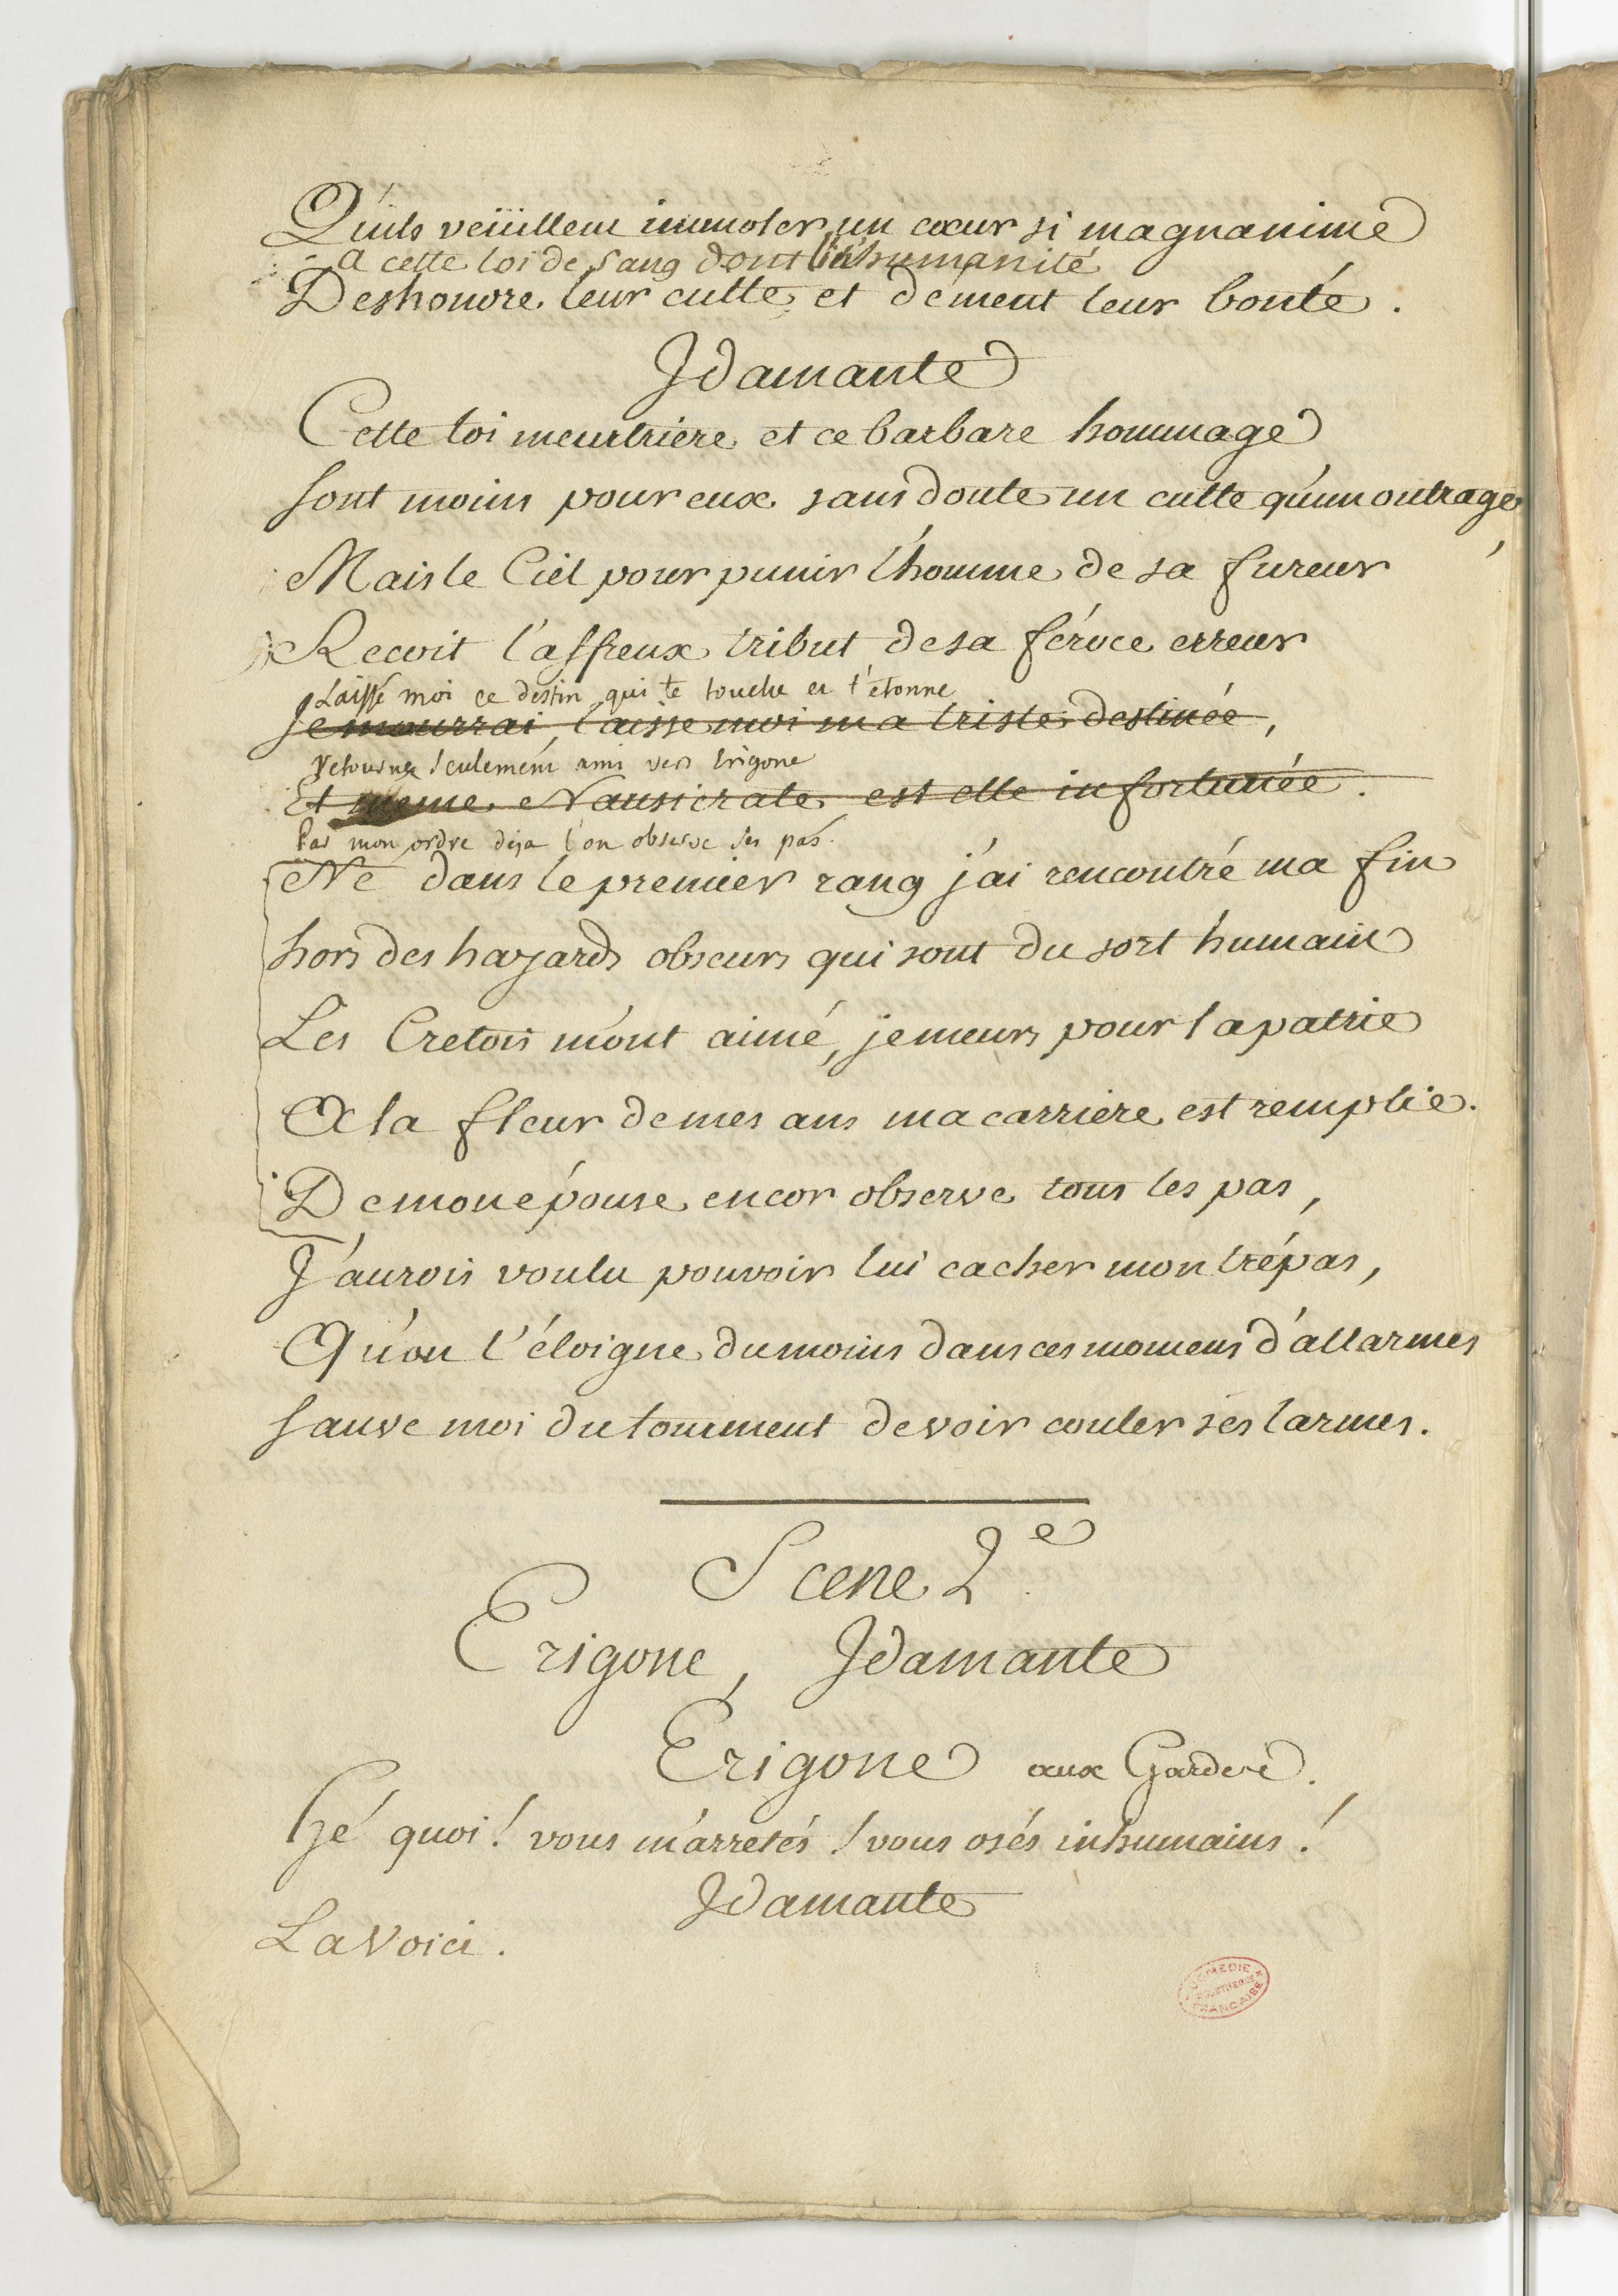 Qu'ils veüillent immoler un cœur si magnanime
a cette loi de sang dont l'inhumanité
Deshonore leur culte et dément leur bonté.
Idamante
Cette loi meurtriere et ce barbare hommage
sont moins pour eux sans doute un culte qu'un outrage,
Mais le Ciel pour punir l'homme de sa fureur
Recoit l'affreux tribut de sa féroce erreur
Laisse moi ce destin qui te touche et t'étonne
Je mourrai, laisse moi ma triste destinée,
retourne seulement ami vers Erigone
Et meme Nausicrate est elle infortunée.
Par mon ordre déja l'on observe ses pas.
Né dans le premier rang j'ai rencontré ma fin
hors des hazards obscurs qui sont du sort humain
Les Cretois m'ont aimé, je meurs pour la patrie
A la fleur de mes ans ma carriere est remplie.
De mon épouse encor observe tous les pas,
J'aurois voulu pouvoir lui cacher mon trépas,
Qu'on l'éloigne du moins dans ces momens d'allarmes
sauve moi du tourment de voir couler ses larmes.
Scene 2e.
Erigone, Idamante
Erigone aux Gardes.
hé quoi! vous m'arretés! vous osés inhumains!
Idamante
La Voici.
COMEDIE FRANCAISE